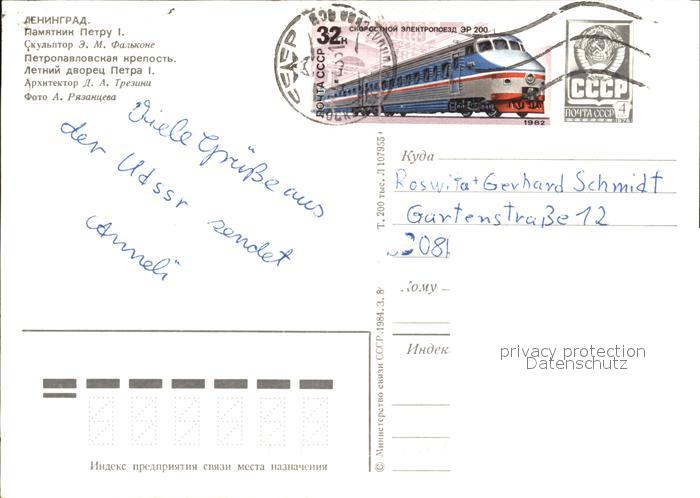 ЛЕНИНГРАД.
Памятник Петру I.
Скульптор Э. М. Фальконе
Петропавловская крепость.
Летний дворец Петра I.
Архитектор Д. А. Трезини
Фото А. Рязанцева
Viele Grüße aus
der UdSSR sendet
Anneli
32к
СКОРОСТНОЙ ЭЛЕКТРОПОЕЗД ЭР 200
ПОЧТА СССР
1982
СССР
ПОЧТА СССР
4
к
Куда
Roswita + Gerhard Schmidt
Gartenstraße 12
Кому
Индекс
privacy protection
Datenschutz
Индекс предприятия связи места назначения
© Министерство связи СССР. 1984. З. 8
Т. 200 тыс. Л 107955